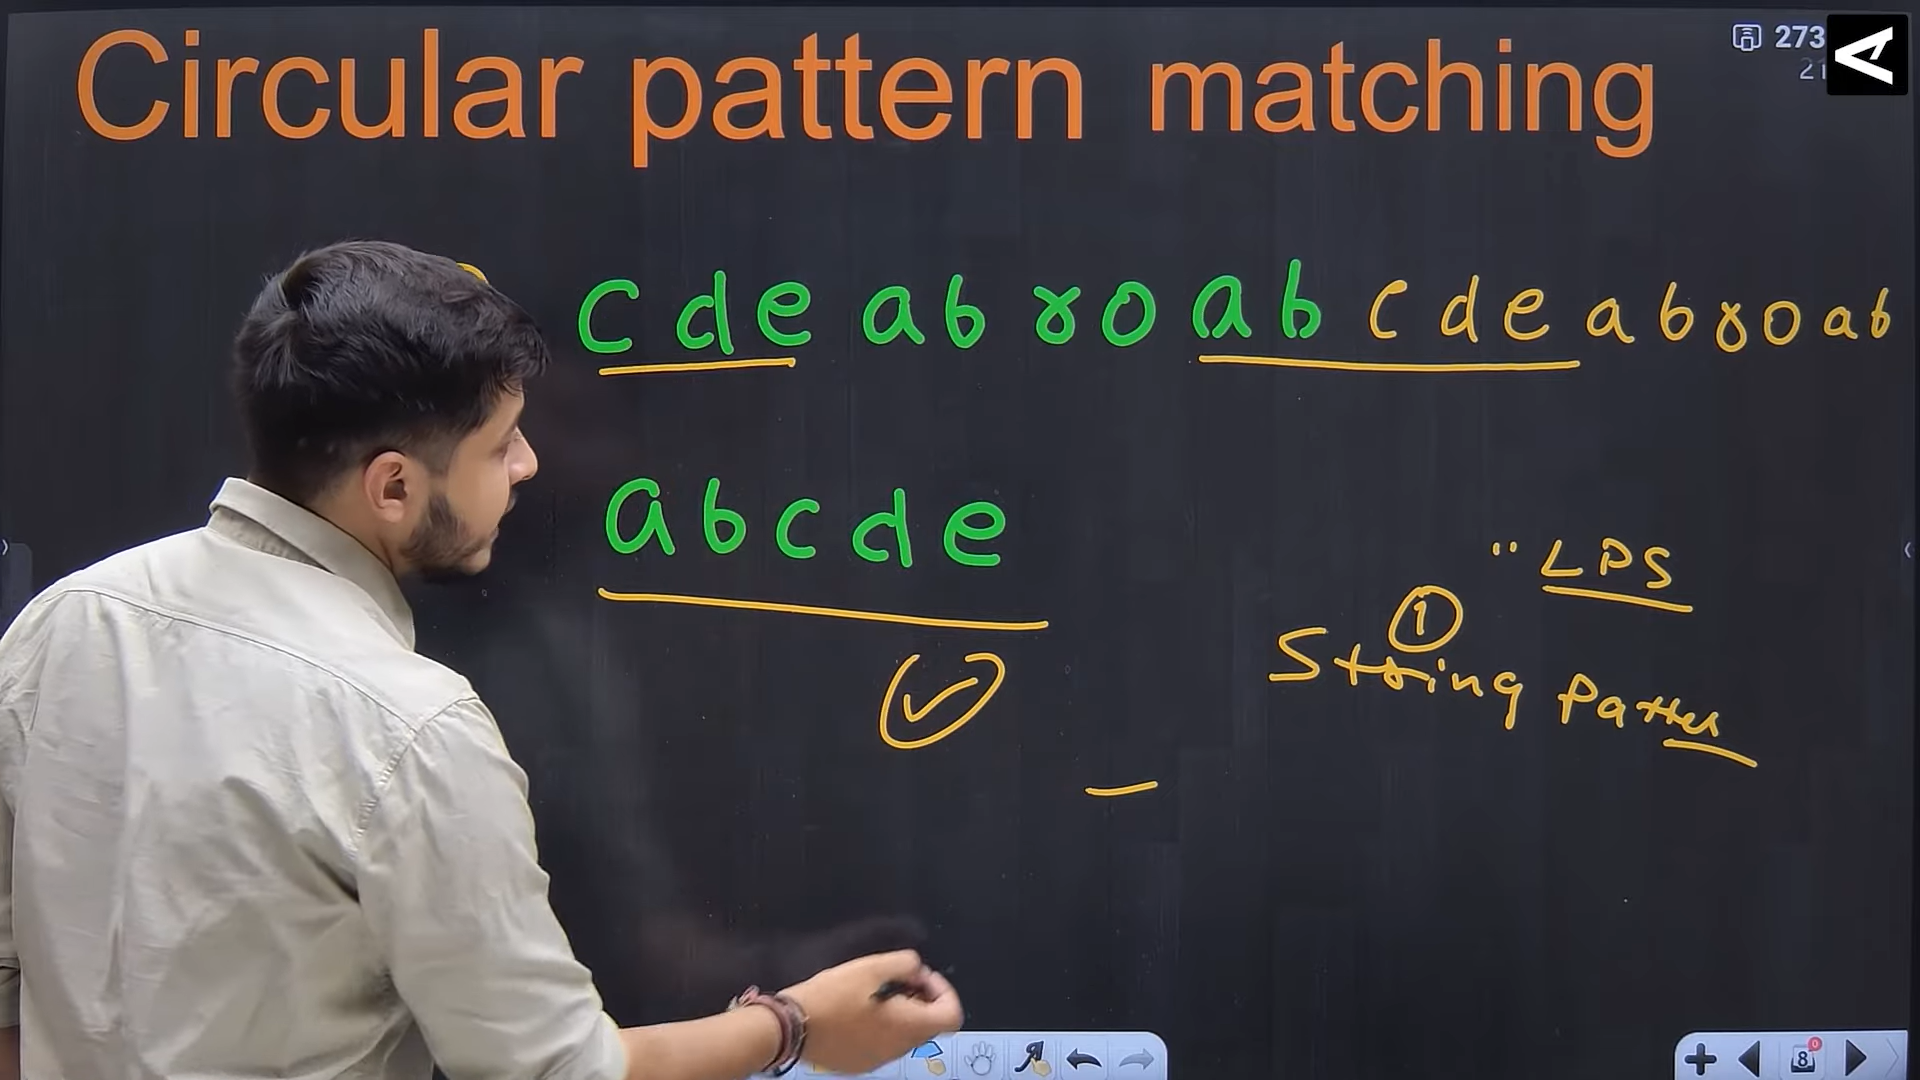 Circular pattern matching
273
21
c d e a b r o a b c d e a b r o a b
a b c d e
" LPS
1
String Patter
8
0